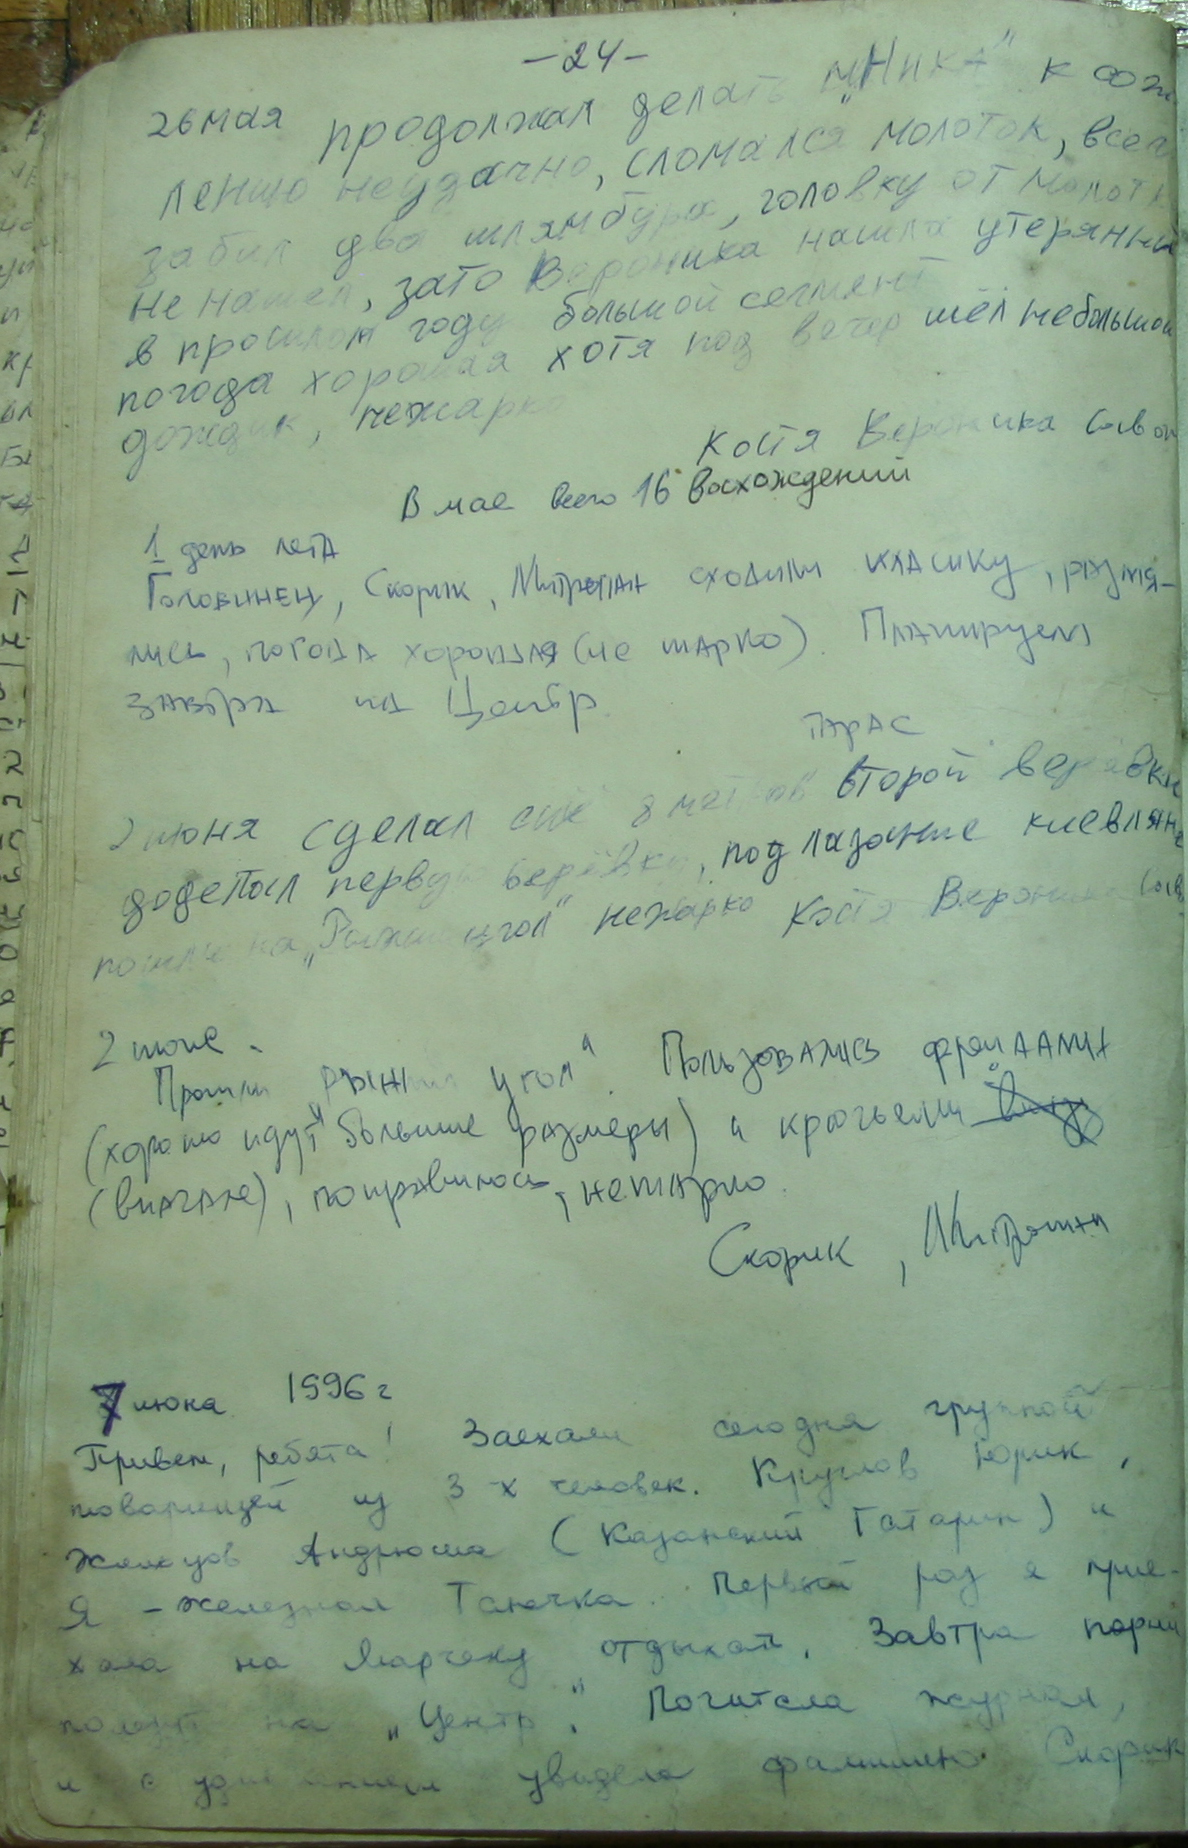 -24-
26 мая продолжал делать "Ника" к сож
лению неудачно, сломался молоток, всего
забил два шлямбура, головку от молотк
не нашел, зато Вероника нашла утерянный
в прошлом году большой сегмент
погода хорошая хотя под вечер шёл небольшой
дождик, нежарко
Костя Вероника
В мае всего 16 восхождений
1 день лета
Головинец, Скорик, Митропан сходили класику, размя-
лись, погода хорошая (не жарко). Планируем
завтра на Центр.
Тарас
2 июня сделал ещё 8 метров второй верёвки
доделал первую верёвку, под лазание киевляне
пошли на "Рыжий угол" нежарко Костя Вероника
2 июне.
Прошли "Рыжий угол". Пользовались френдами
(хорошо идут большие размеры) и крючьями
(вначале), понравилось, нежарко.
Скорик, Митропан
7 июня 1996 г
Привет, ребята! Заехали сегодня группой
товарищей из 3-х человек. Круглов Юрик,
Андрюша (Казанский Татарин) и
Я - железная Танечка. Первый раз я прие-
хала на Марчеку отдыхать. Завтра парни
полезут на "Центр". Почитала журнал,
и с удивлением увидела фамилию Скорик